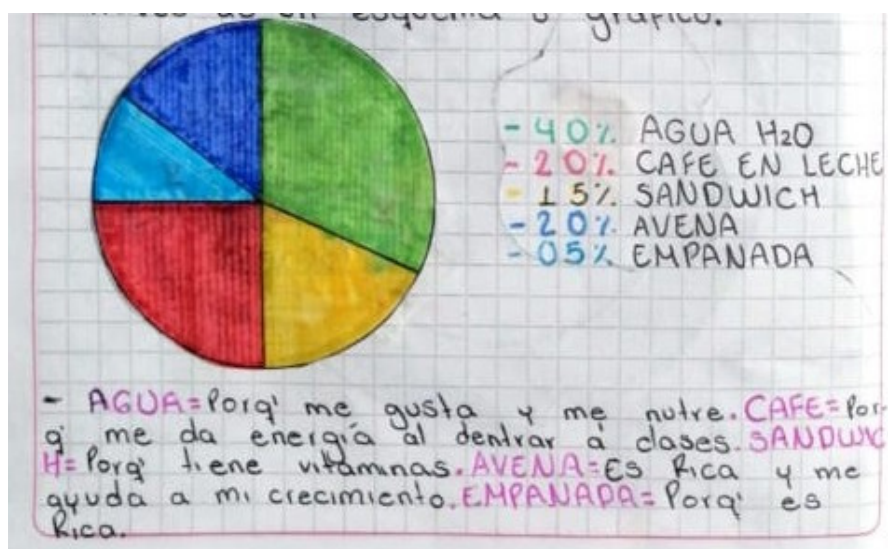 esquema o gráfico.
- 40% AGUA H2O
- 20% CAFE EN LECHE
- 15% SANDWICH
- 20% AVENA
- 05% EMPANADA
- AGUA= Porq' me gusta y me nutre. CAFE= Por
q' me da energía al dentrar a clases. SANDWIC
H= Porq' tiene vitaminas. AVENA= Es Rica y me
ayuda a mi crecimiento. EMPANADA= Porq' es
Rica.